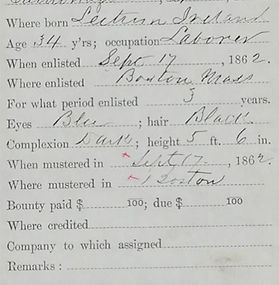 Where born Leitrim Ireland
Age 34 y'rs; occupation Laborer
When enlisted Sept 17, 1862.
Where enlisted Boston Mass
For what period enlisted 3 years.
Eyes Blue; hair Black
Complexion Dark; height 5 ft. 6 in.
When mustered in Sept 17, 1862.
Where mustered in Boston
Bounty paid $ 100; due $ 100
Where credited
Company to which assigned
Remarks: